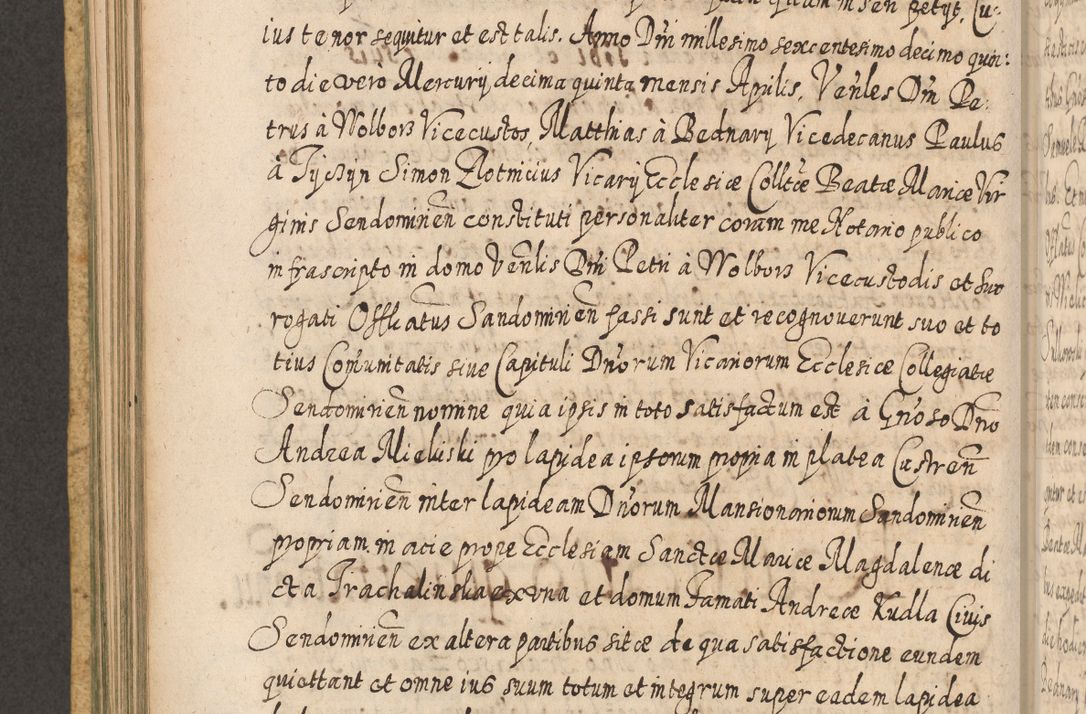 in sen petyt, Cu-
ius tenor sequitur et est talis. Anno Dni millesimo sexcentesimo decimo quin:
to die vero Mercurij decima quinta mensis Aprilis, Ven̄les Dn̄i Pe-
trus à Wolborz Vicecustos, Matthias à Bednary Vicedecanus Paulus
à Tyczyn Simon Zlotnicius Vicarij Ecclesiæ Colltæ Beatæ Mariæ Vir
ginis Sendomirien̄ constituti personaliter coram me Notario publico
infrascripto in domo Ven̄lis Dn̄i Petri à Wolborz Vicecustodis et Sur
rogati Offlicatus Sandomirien̄ fassi sunt et recognoverunt suo et to
tius Com̄unitatis sive Capituli Dn̄orum Vicariorum Ecclesiæ Collegiatæ
Sendomirien̄ nomine quia ipsis in toto satisfactum est à Gn̄oso Dn̄o
Andrea Mieliski pro lapidea ipsorum propria in platea Castren̄
Sendomirien̄ inter lapideam Dn̄orum Mansionariorum Sandomirien̄
propriam in acie prope Ecclesiam Sanctæ Mariæ Magdalenæ di
cta Trachalinska ex una et domum Famati Andreæ Kudla Civis
Sendomirien̄ ex altera partibus sitæ de qua satisfactione eundem
quiettant et omne ius suum totum et integrum super eadem lapidea